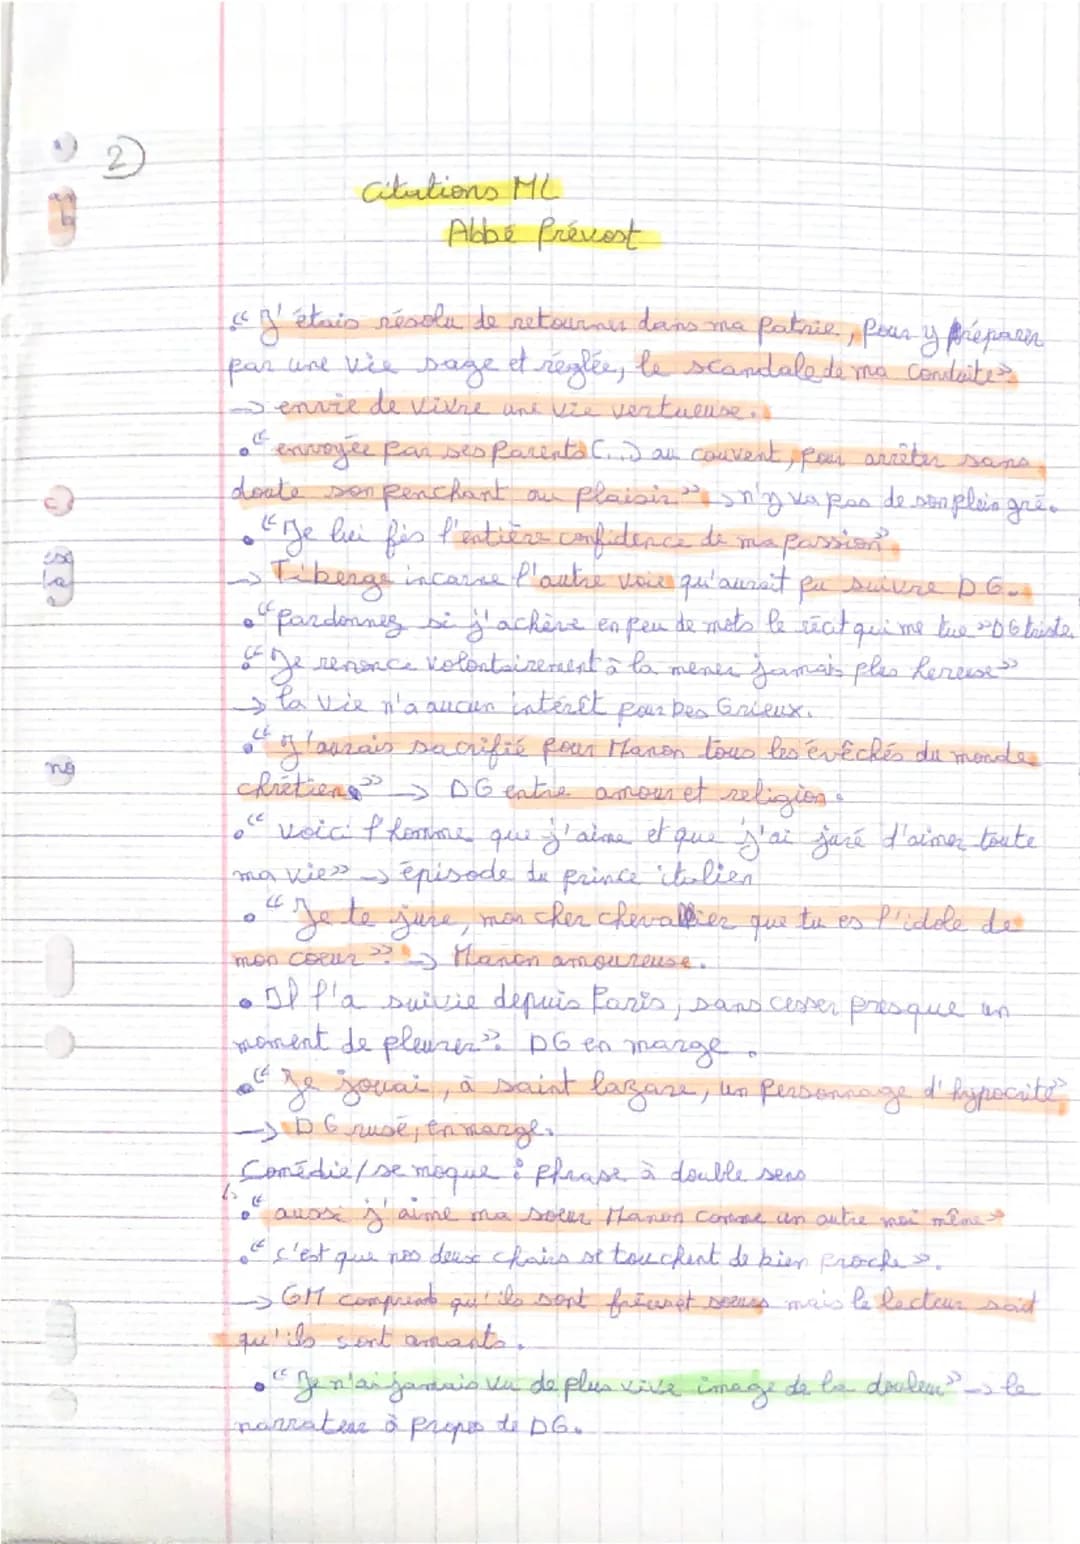 2)
Citations ML
Abbé Prévost
"J'étais résolu de retourner dans ma patrie, pour y préparer
par une vie sage et réglée, le scandale de ma conduite"
→ envie de vivre une vie vertueuse.
• "envoyée par ses parents (...) au couvent, pour arrêter sans
doute son penchant au plaisir" → n'y va pas de son plein gré.
• "Je lui fis l'entière confidence de ma passion"
→ Tiberge incarne l'autre voie qu'aurait pu suivre DG.
• "pardonnez si j'achève en peu de mots le récit qui me tue" DG triste
• "Je renonce volontairement à la mener jamais plus hereuse"
→ la vie n'a aucun intérêt pour Des Grieux.
• "J'aurais sacrifié pour Manon tous les évêchés du monde
chrétien" → DG entre amour et religion.
• "voici l'homme que j'aime et que j'ai juré d'aimer toute
ma vie" → épisode du prince italien
• "Je te jure, mon cher chevalier que tu es l'idole de
mon coeur". → Manon amoureuse.
• Il l'a suivie depuis Paris, sans cesser presque un
moment de pleurer". DG en marge.
• "Je jouai, à saint lazare, un personnage d'hypocrite"
→ DG rusé, en marge.
Comédie/se moque : phrase à double sens
• "aussi j'aime ma soeur Manon comme un autre moi même"
• "c'est que nos deux chairs se touchent de bien proche".
→ GM comprend qu'ils sont frère et soeurs mais le lecteur sait
qu'ils sont amants.
• "Je n'ai jamais vu de plus vive image de la douleur" → le
narrateur à propos de DG.
ng